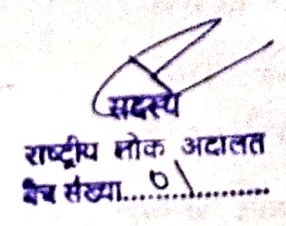 सदस्य
राष्ट्रीय लोक अदालत
बैंच संख्या....01..................